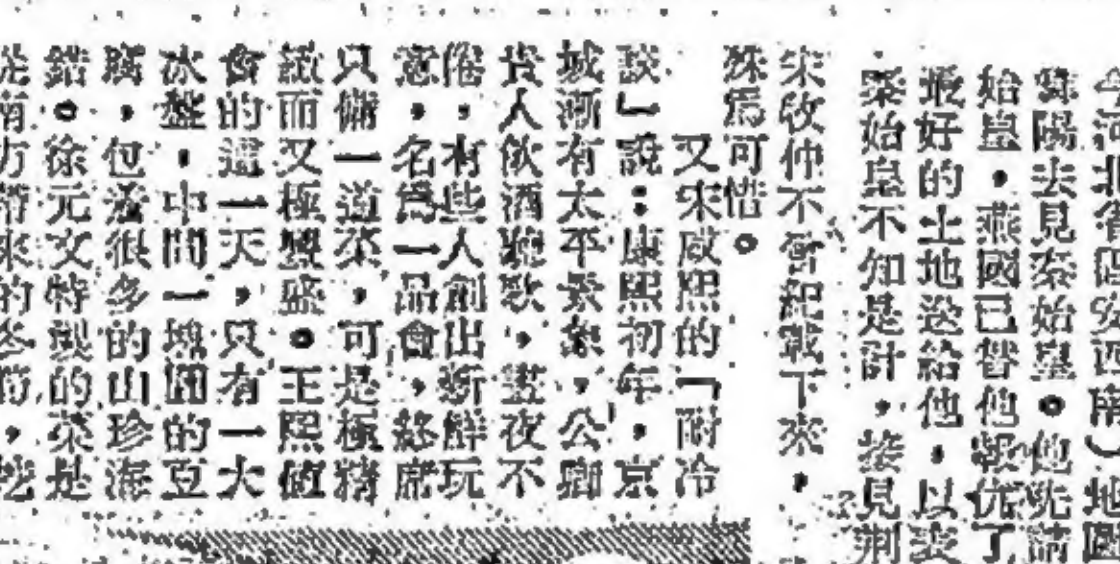 今河北省固安西南)地圖
陽去見秦始皇。他先請
始皇,燕國已替他報仇了
最好的土地送給他,以表
秦始皇不知是計,接見荆
宋牧仲不曾紀載下來,
殊爲可惜。
又宋咸熙的「耐冷
談」說:康熙初年,京
城漸有太平景象,公卿
貴人飲酒聽歌,晝夜不
倦,有些人創出新鮮玩
意,名爲一品會,終席
只備一道菜,可是極精
緻而又極豐盛。王熙值
會的這一天,只有一大
冰盤,中間一塊圓的豆
腐,包着很多的山珍海
錯。徐元文特製的菜是
從南方帶來的冬筍,挖